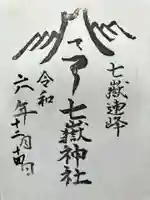 七嶽連峰
七嶽神社
令和
六年十二月